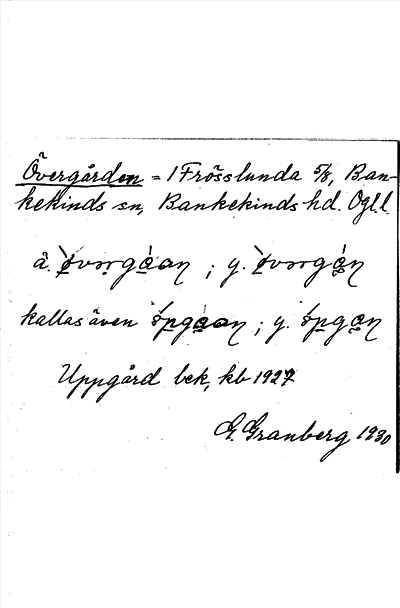 Övergården = 1 Frösslunda 5/8, Ban-
kekinds sn, Bankekinds hd. Ögl.
ä. ; y.
kallas även ; y.
Uppgård bek, kb 1927
G. Granberg 1930